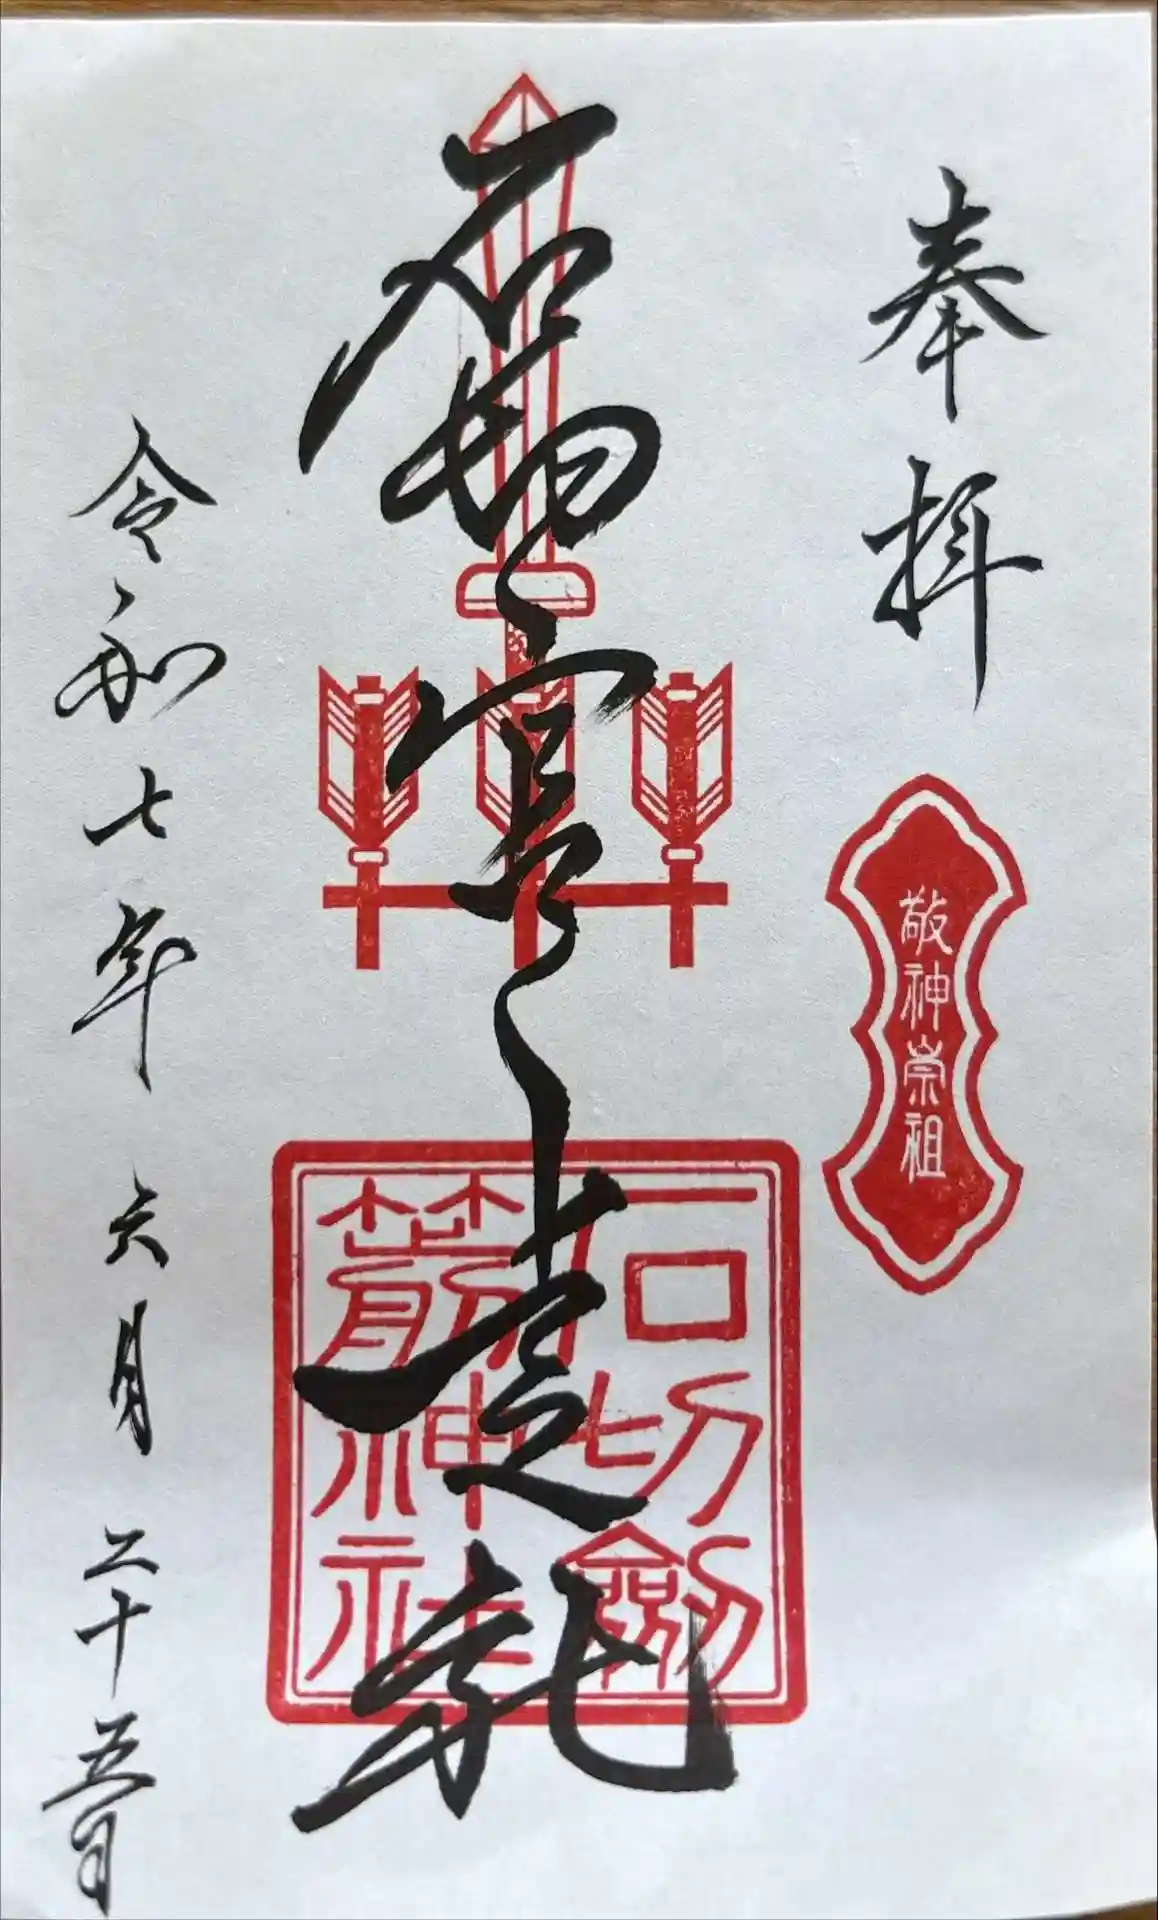 奉拝
敬神崇祖
石切宮
石切劔
箭神社
令和七年六月二十五日